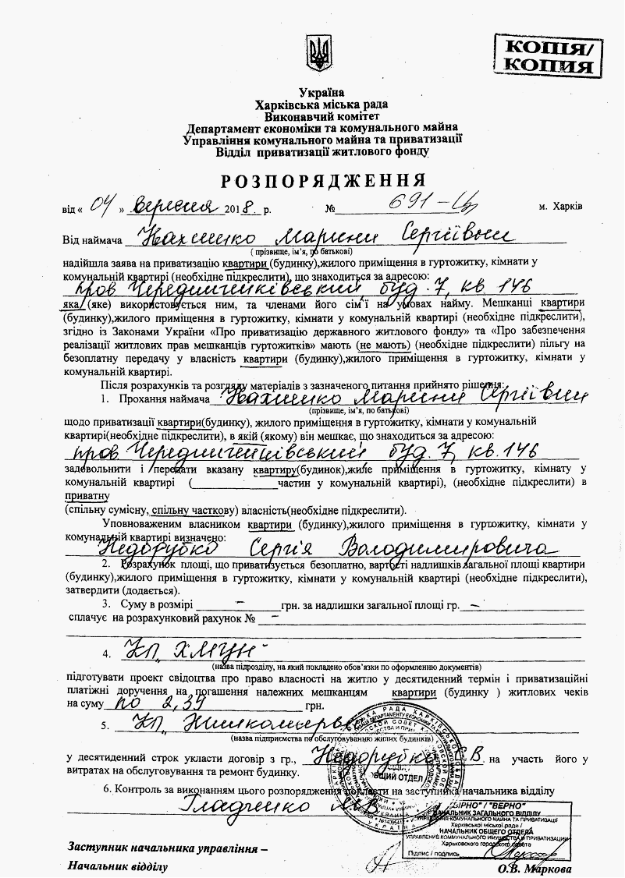 КОПІЯ/
КОПИЯ
Україна
Харківська міська рада
Виконавчий комітет
Департамент економіки та комунального майна
Управління комунального майна та приватизації
Відділ приватизації житлового фонду
РОЗПОРЯДЖЕННЯ
від « 04 » вересня 2018 р. № 691- м. Харків
Від наймача Марини Сергіївни
( прізвище, ім'я, по батькові)
надійшла заява на приватизацію квартири (будинку),жилого приміщення в гуртожитку, кімнати у
комунальній квартирі (необхідне підкреслити), що знаходиться за адресою:
пров. Чередниченківський буд. 7, кв. 146
яка (яке) використовується ним, та членами його сім'ї на умовах найму. Мешканці квартири
(будинку),жилого приміщення в гуртожитку, кімнати у комунальній квартирі (необхідне підкреслити),
згідно із Законами України «Про приватизацію державного житлового фонду» та «Про забезпечення
реалізації житлових прав мешканців гуртожитків» мають (не мають) (необхідне підкреслити) пільгу на
безоплатну передачу у власність квартири (будинку),жилого приміщення в гуртожитку, кімнати у
комунальній квартирі.
Після розрахунків та розгляду матеріалів з зазначеного питання прийнято рішення:
1. Прохання наймача Марини Сергіївни
(прізвище, ім'я, по батькові)
щодо приватизації квартири(будинку), жилого приміщення в гуртожитку, кімнати у комунальній
квартирі(необхідне підкреслити), в якій (якому) він мешкає, що знаходиться за адресою:
пров. Чередниченківський буд. 7, кв. 146
задовольнити і передати вказану квартиру(будинок),жиле приміщення в гуртожитку, кімнату у
комунальній квартирі (____________частин у комунальній квартирі), (необхідне підкреслити) в
приватну
(спільну сумісну, спільну часткову) власність(необхідне підкреслити).
Уповноваженим власником квартири (будинку),жилого приміщення в гуртожитку, кімнати у
комунальній квартирі визначено:
Недорубко Сергія Володимировича
2. Розрахунок площі, що приватизується безоплатно, вартості надлишків загальної площі квартири
(будинку),жилого приміщення в гуртожитку, кімнати у комунальній квартирі (необхідне підкреслити),
затвердити (додається).
3. Суму в розмірі - грн. за надлишки загальної площі гр. -
сплачує на розрахунковий рахунок № -
4. КП
(назва підрозділу, на який покладено обов'язки по оформленню документів)
підготувати проект свідоцтва про право власності на житло у десятиденний термін і приватизаційні
платіжні доручення на погашення належних мешканцям квартири (будинку ) житлових чеків
на суму по 2,39 грн.
5. КП Жилкомсервіс
(назва підприємства по обслуговуванню жилих будинків)
у десятиденний строк укласти договір з гр., Недорубко С.В. на участь його у
витратах на обслуговування та ремонт будинку.
6. Контроль за виконанням цього розпорядження покласти на заступника начальника відділу
ОБЩИЙ ОТДЕЛ
"ВІРНО" / "ВЕРНО"
НАЧАЛЬНИК ЗАГАЛЬНОГО ВІДДІЛУ
УПРАВЛІННЯ КОМУНАЛЬНОГО МАЙНА ТА ПРИВАТИЗАЦІЇ
Харківської міської ради /
НАЧАЛЬНИК ОБЩЕГО ОТДЕЛА
УПРАВЛЕНИЕ КОММУНАЛЬНОГО ИМУЩЕСТВА И ПРИВАТИЗАЦИИ
Харьковского городского совета
Підпис / подпись
Заступник начальника управління –
Начальник відділу О.В. Маркова